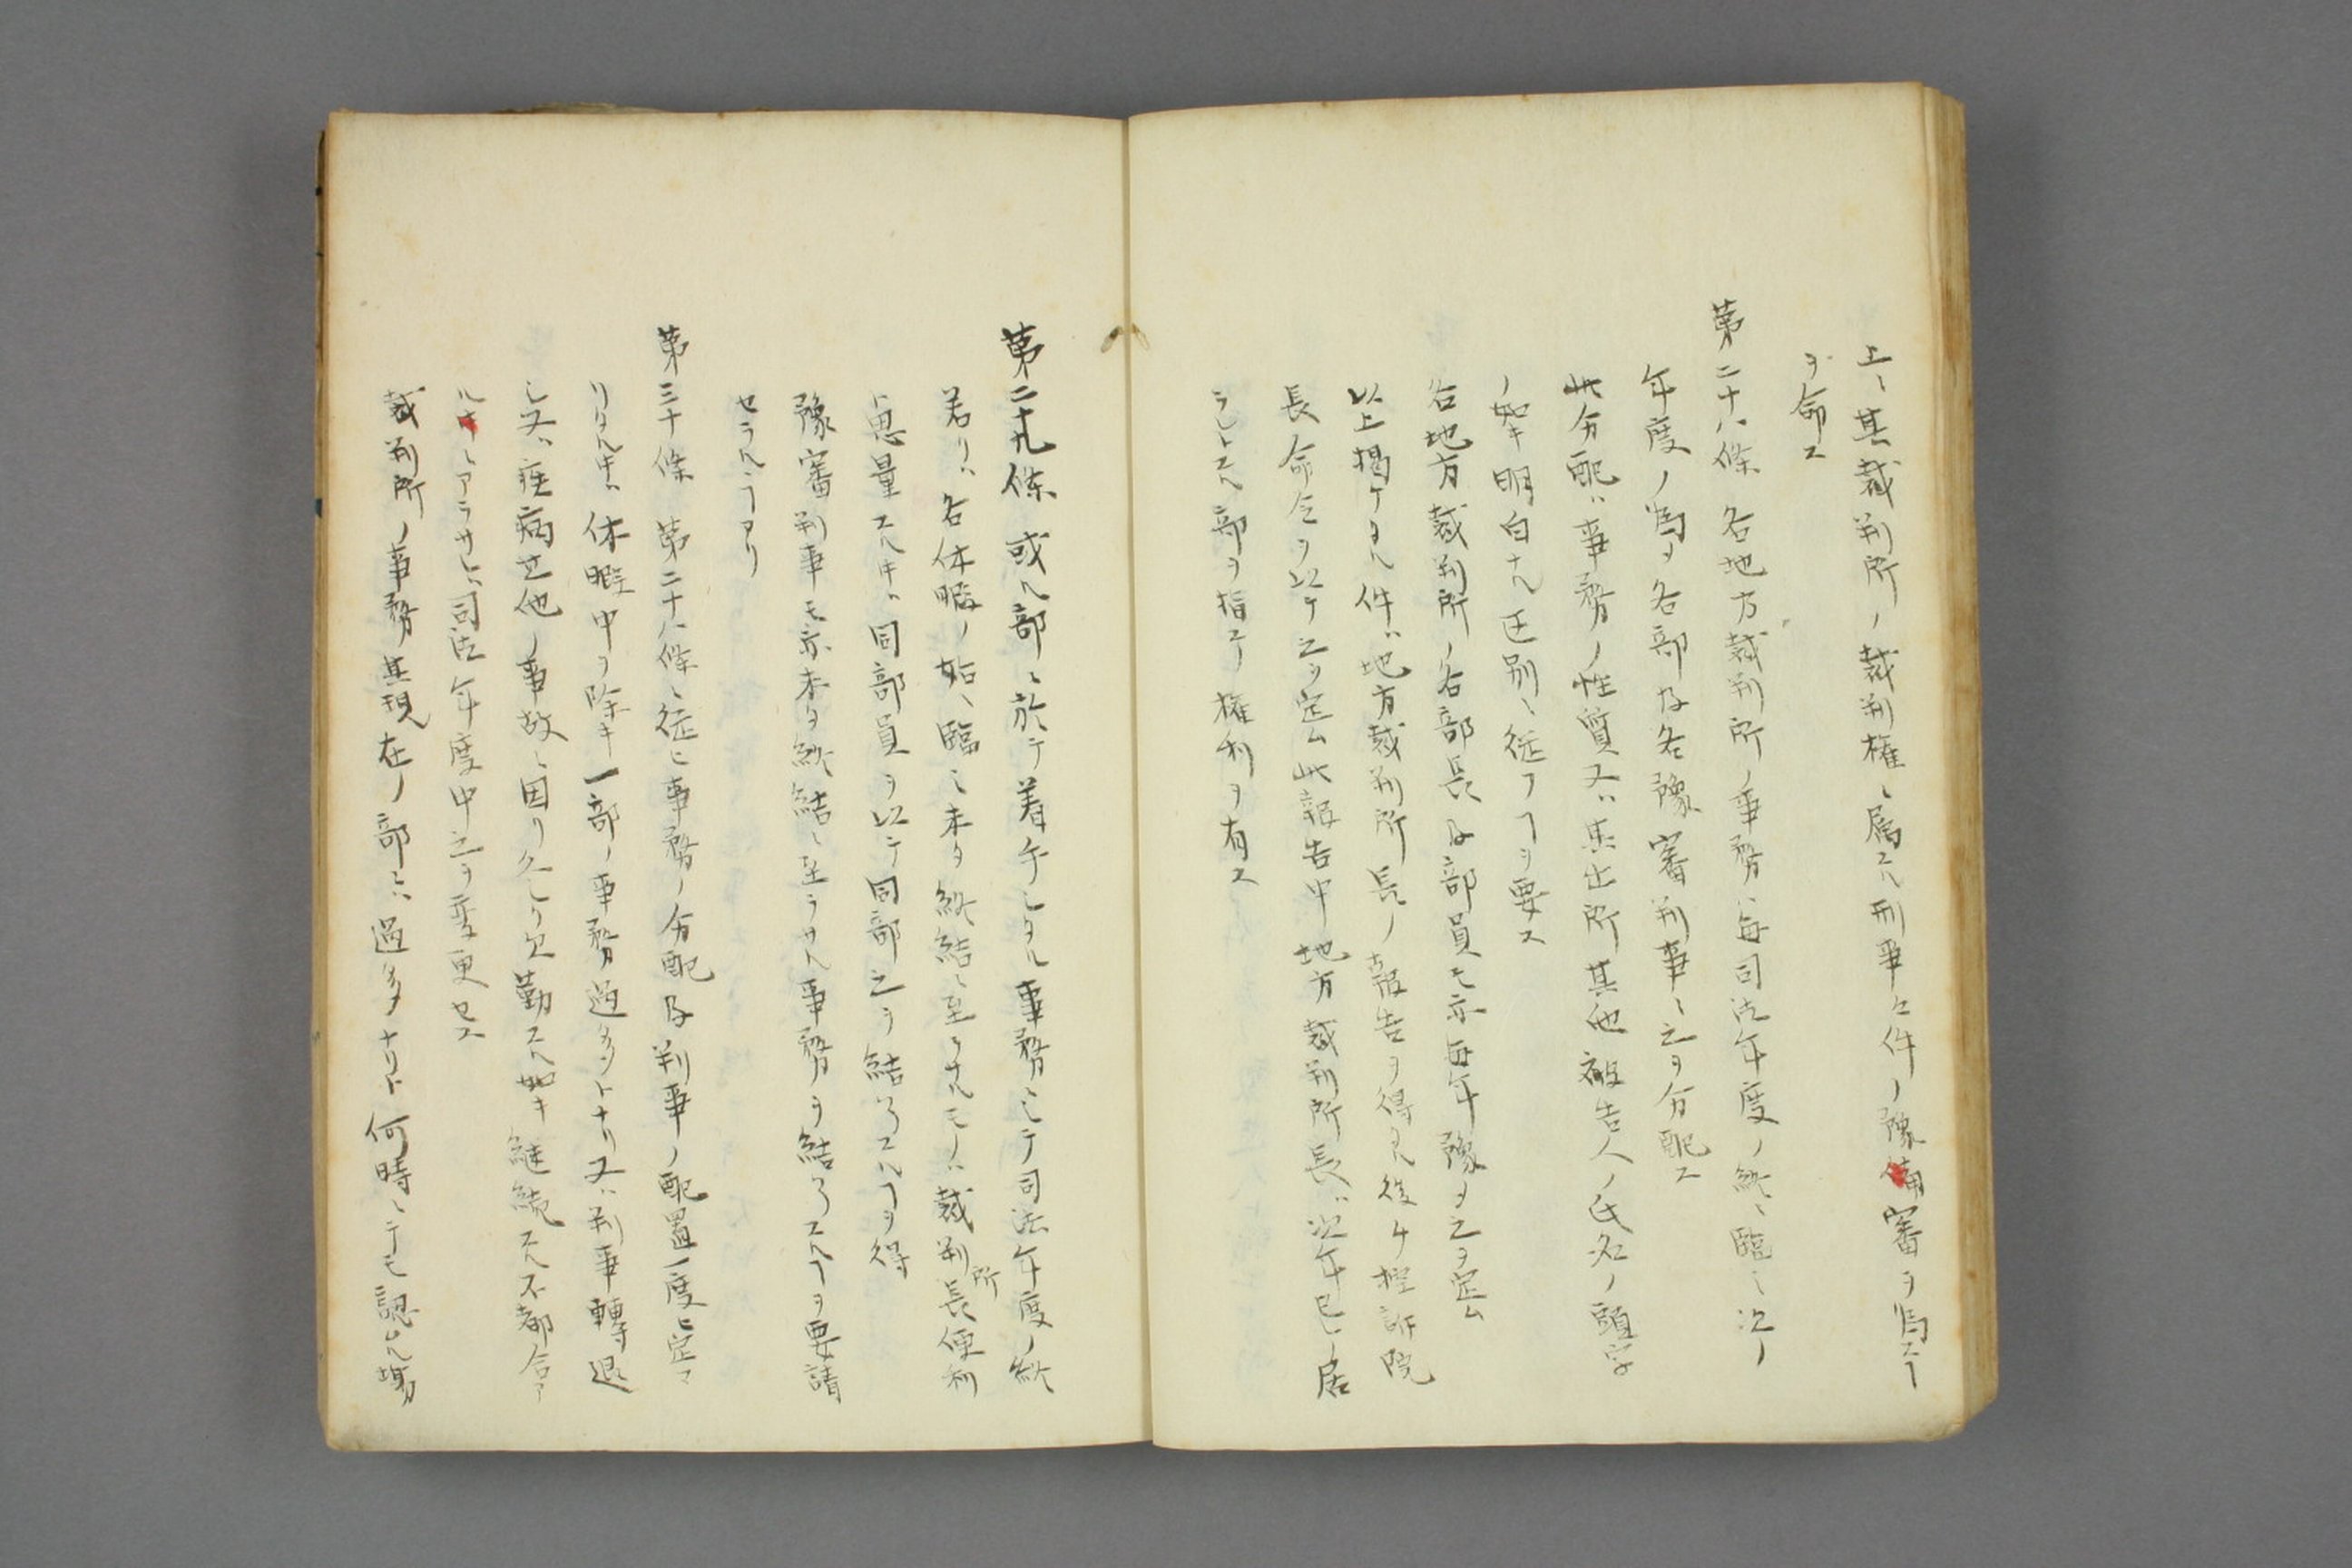 上ニ其裁判所ノ裁判權ニ屬スル刑事々件ノ豫備審ヲ爲スヿ
ヲ命ス
第二十八條 各地方裁判所ノ事務ハ毎司法年度ノ終ニ臨ミ次ノ
年度ノ為メ各部及各豫審判事ニ之ヲ分配ス
此分配ハ事務ノ性質又ハ其出所其他被告人ノ氏名ノ頭字
ノ如キ明白ナル区別ニ従フヿヲ要ス
各地方裁判所ノ各部長及部員モ亦毎年豫メ之ヲ定ム
以上掲ケタル件ハ地方裁判所長ノ報告ヲ得タル後チ控訴院
長命令ヲ以テ之ヲ定ム此報告中地方裁判所長ハ次年已ニ居
ラントスル部ヲ指スノ權利ヲ有ス
第二十九條 或ル部ニ於テ着手シタル事務ニシテ司法年度ノ終
若クハ各休暇ノ始ニ臨ミ未タ終結ニ至ラサルモノハ裁判所長便利
ト思量スル片ハ同部員ヲ以テ同部之ヲ結了スルヿヲ得
豫審判事モ亦未タ終結ニ至ラサル事務ヲ結了スルヿヲ要請
セラルヽヿアリ
第三十條 第二十八條ニ従ヒ事務ノ分配及判事ノ配置一度ヒ定マ
リタル片ハ休暇中ヲ除キ一部ノ事務過多トナリ又ハ判事轉退
シ又ハ疾病其他ノ事故ニ因リ久シク欠勤スル如キ継続スル不都合ア
ルキニアラサレハ司法年度中之ヲ変更セス
裁判所ノ事務其現在ノ部ニハ過多ナリト何時ニテモ認ムル塲